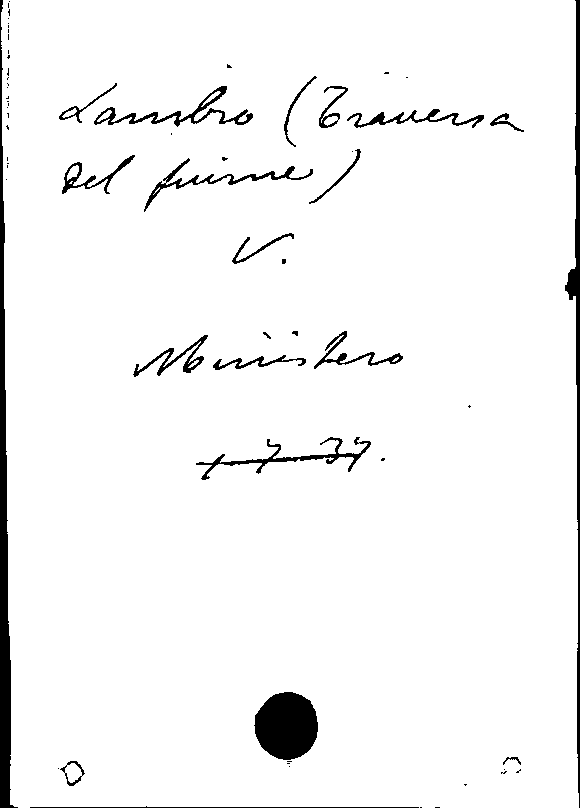 Lambro (Traversa
del fiume)
V.
Ministero
1 7 37.